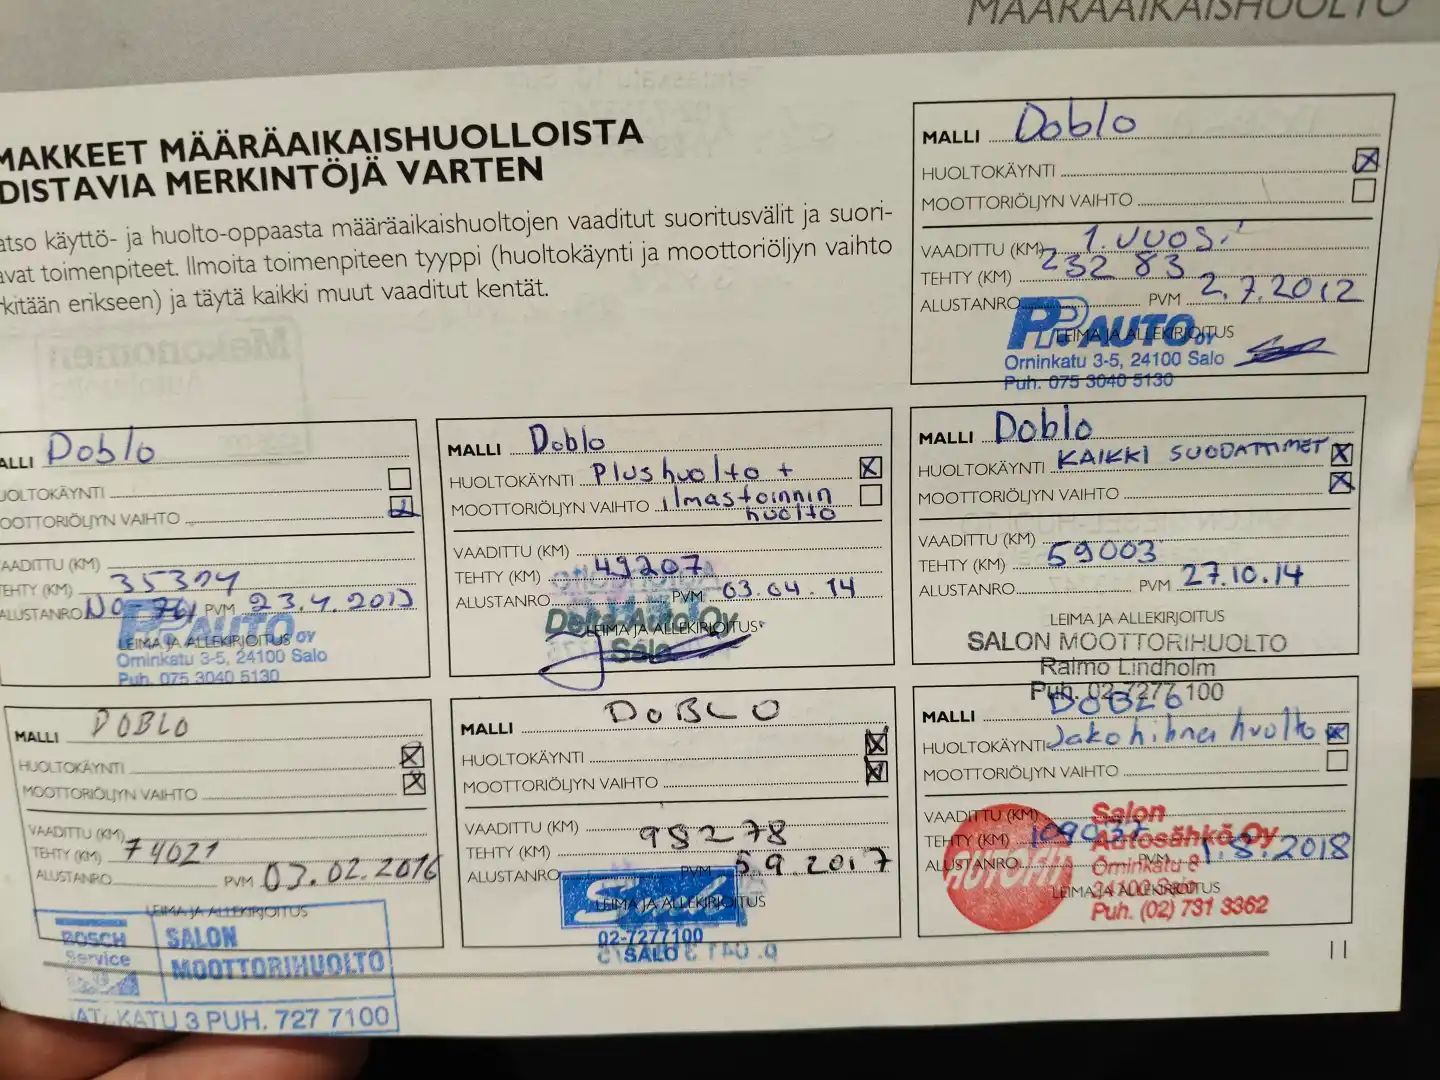 MÄÄRÄAIKAISHUOLTO
MAKKEET MÄÄRÄAIKAISHUOLLOISTA
DISTAVIA MERKINTÖJÄ VARTEN
atso käyttö- ja huolto-oppaasta määräaikaishuoltojen vaaditut suoritusvälit ja suori-
avat toimenpiteet. Ilmoita toimenpiteen tyyppi (huoltokäynti ja moottoriöljyn vaihto
rkitään erikseen) ja täytä kaikki muut vaaditut kentät.
MALLI Doblo
HUOLTOKÄYNTI
MOOTTORIÖLJYN VAIHTO
VAADITTU (KM) 1. vuosi
TEHTY (KM) 232 83
ALUSTANRO PVM 2.7.2012
LEIMA JA ALLEKIRJOITUS
PP AUTO OY
Orninkatu 3-5, 24100 Salo
Puh. 075 3040 5130
ALLI Doblo
UOLTOKÄYNTI
OOTTORIÖLJYN VAIHTO
AADITTU (KM)
TEHTY (KM)
ALUSTANRO PVM
LEIMA JA ALLEKIRJOITUS
AUTO OY
Orninkatu 3-5, 24100 Salo
Puh. 075 3040 5130
MALLI Doblo
HUOLTOKÄYNTI Plushuolto +
MOOTTORIÖLJYN VAIHTO ilmastoinnin
huolto
VAADITTU (KM)
TEHTY (KM) 49207
ALUSTANRO PVM 03.04.14
LEIMA JA ALLEKIRJOITUS
Delta-Auto Oy
Salo
MALLI Doblo
HUOLTOKÄYNTI KAIKKI SUODATTIMET
MOOTTORIÖLJYN VAIHTO
VAADITTU (KM)
TEHTY (KM) 59003
ALUSTANRO PVM 27.10.14
LEIMA JA ALLEKIRJOITUS
SALON MOOTTORIHUOLTO
Raimo Lindholm
Puh. 02-7277 100
MALLI DOBLO
HUOLTOKÄYNTI
MOOTTORIÖLJYN VAIHTO
VAADITTU (KM)
TEHTY (KM) 74021
ALUSTANRO PVM 03.02.2016
LEIMA JA ALLEKIRJOITUS
BOSCH
Service
SALON
MOOTTORIHUOLTO
KATU 3 PUH. 727 7100
MALLI DOBLO
HUOLTOKÄYNTI
MOOTTORIÖLJYN VAIHTO
VAADITTU (KM)
TEHTY (KM) 98278
ALUSTANRO PVM 5.9.2017
LEIMA JA ALLEKIRJOITUS
02-7277100
SALO
MALLI DOBLO
HUOLTOKÄYNTI Jakohihna huolto
MOOTTORIÖLJYN VAIHTO
VAADITTU (KM)
TEHTY (KM) 109037
ALUSTANRO PVM 1.8.2018
LEIMA JA ALLEKIRJOITUS
Salon
Autosähkö Oy
Orninkatu 8
24100 Salo
Puh. (02) 731 3362
11